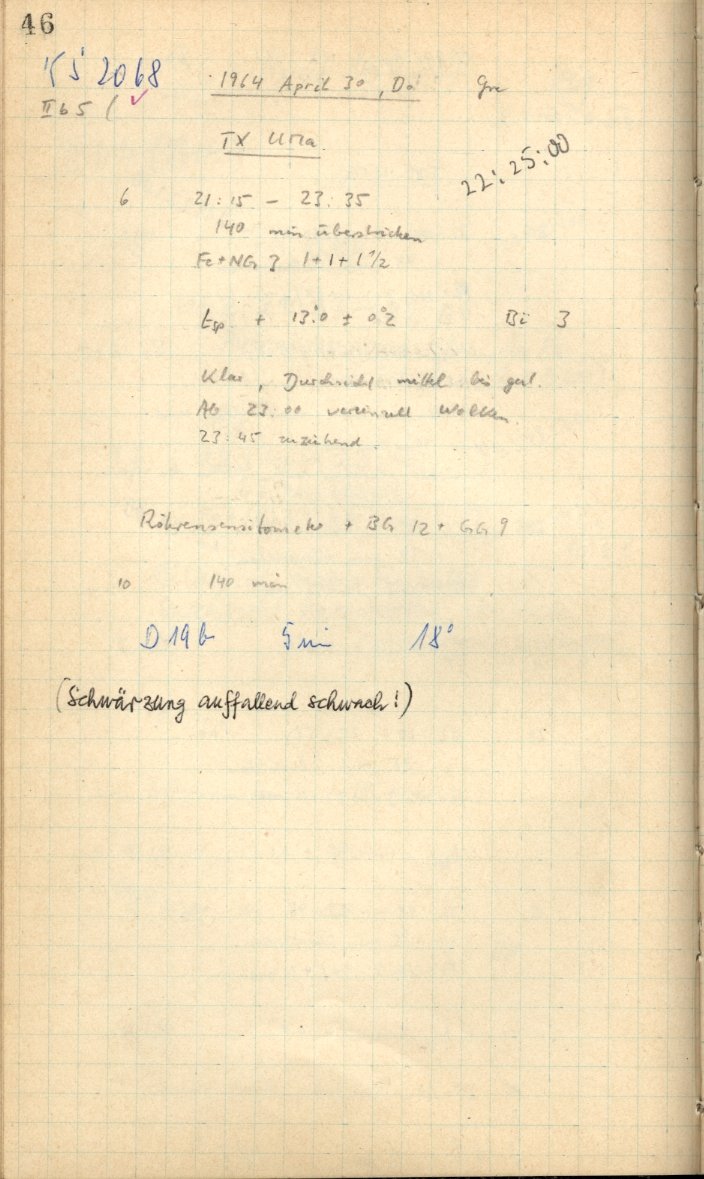 46
2068
1964 April 30, Do Gre
II b 5
TX UMa
22:25:00
6 21:15 – 23:35
140 min überstrichen
Fe+NG 3 1+1+1 1/2
tsp + 13°.0 ± 0°.2 Bi 3
Klar, Durchsicht mittel bis gut.
Ab 23:00 vereinzelt Wolken.
23:45 zuziehend.
Röhrensensitometer + BG 12 + GG 9
10 140 min
D 19 b 5 min 18°
(Schwärzung auffallend schwach!)